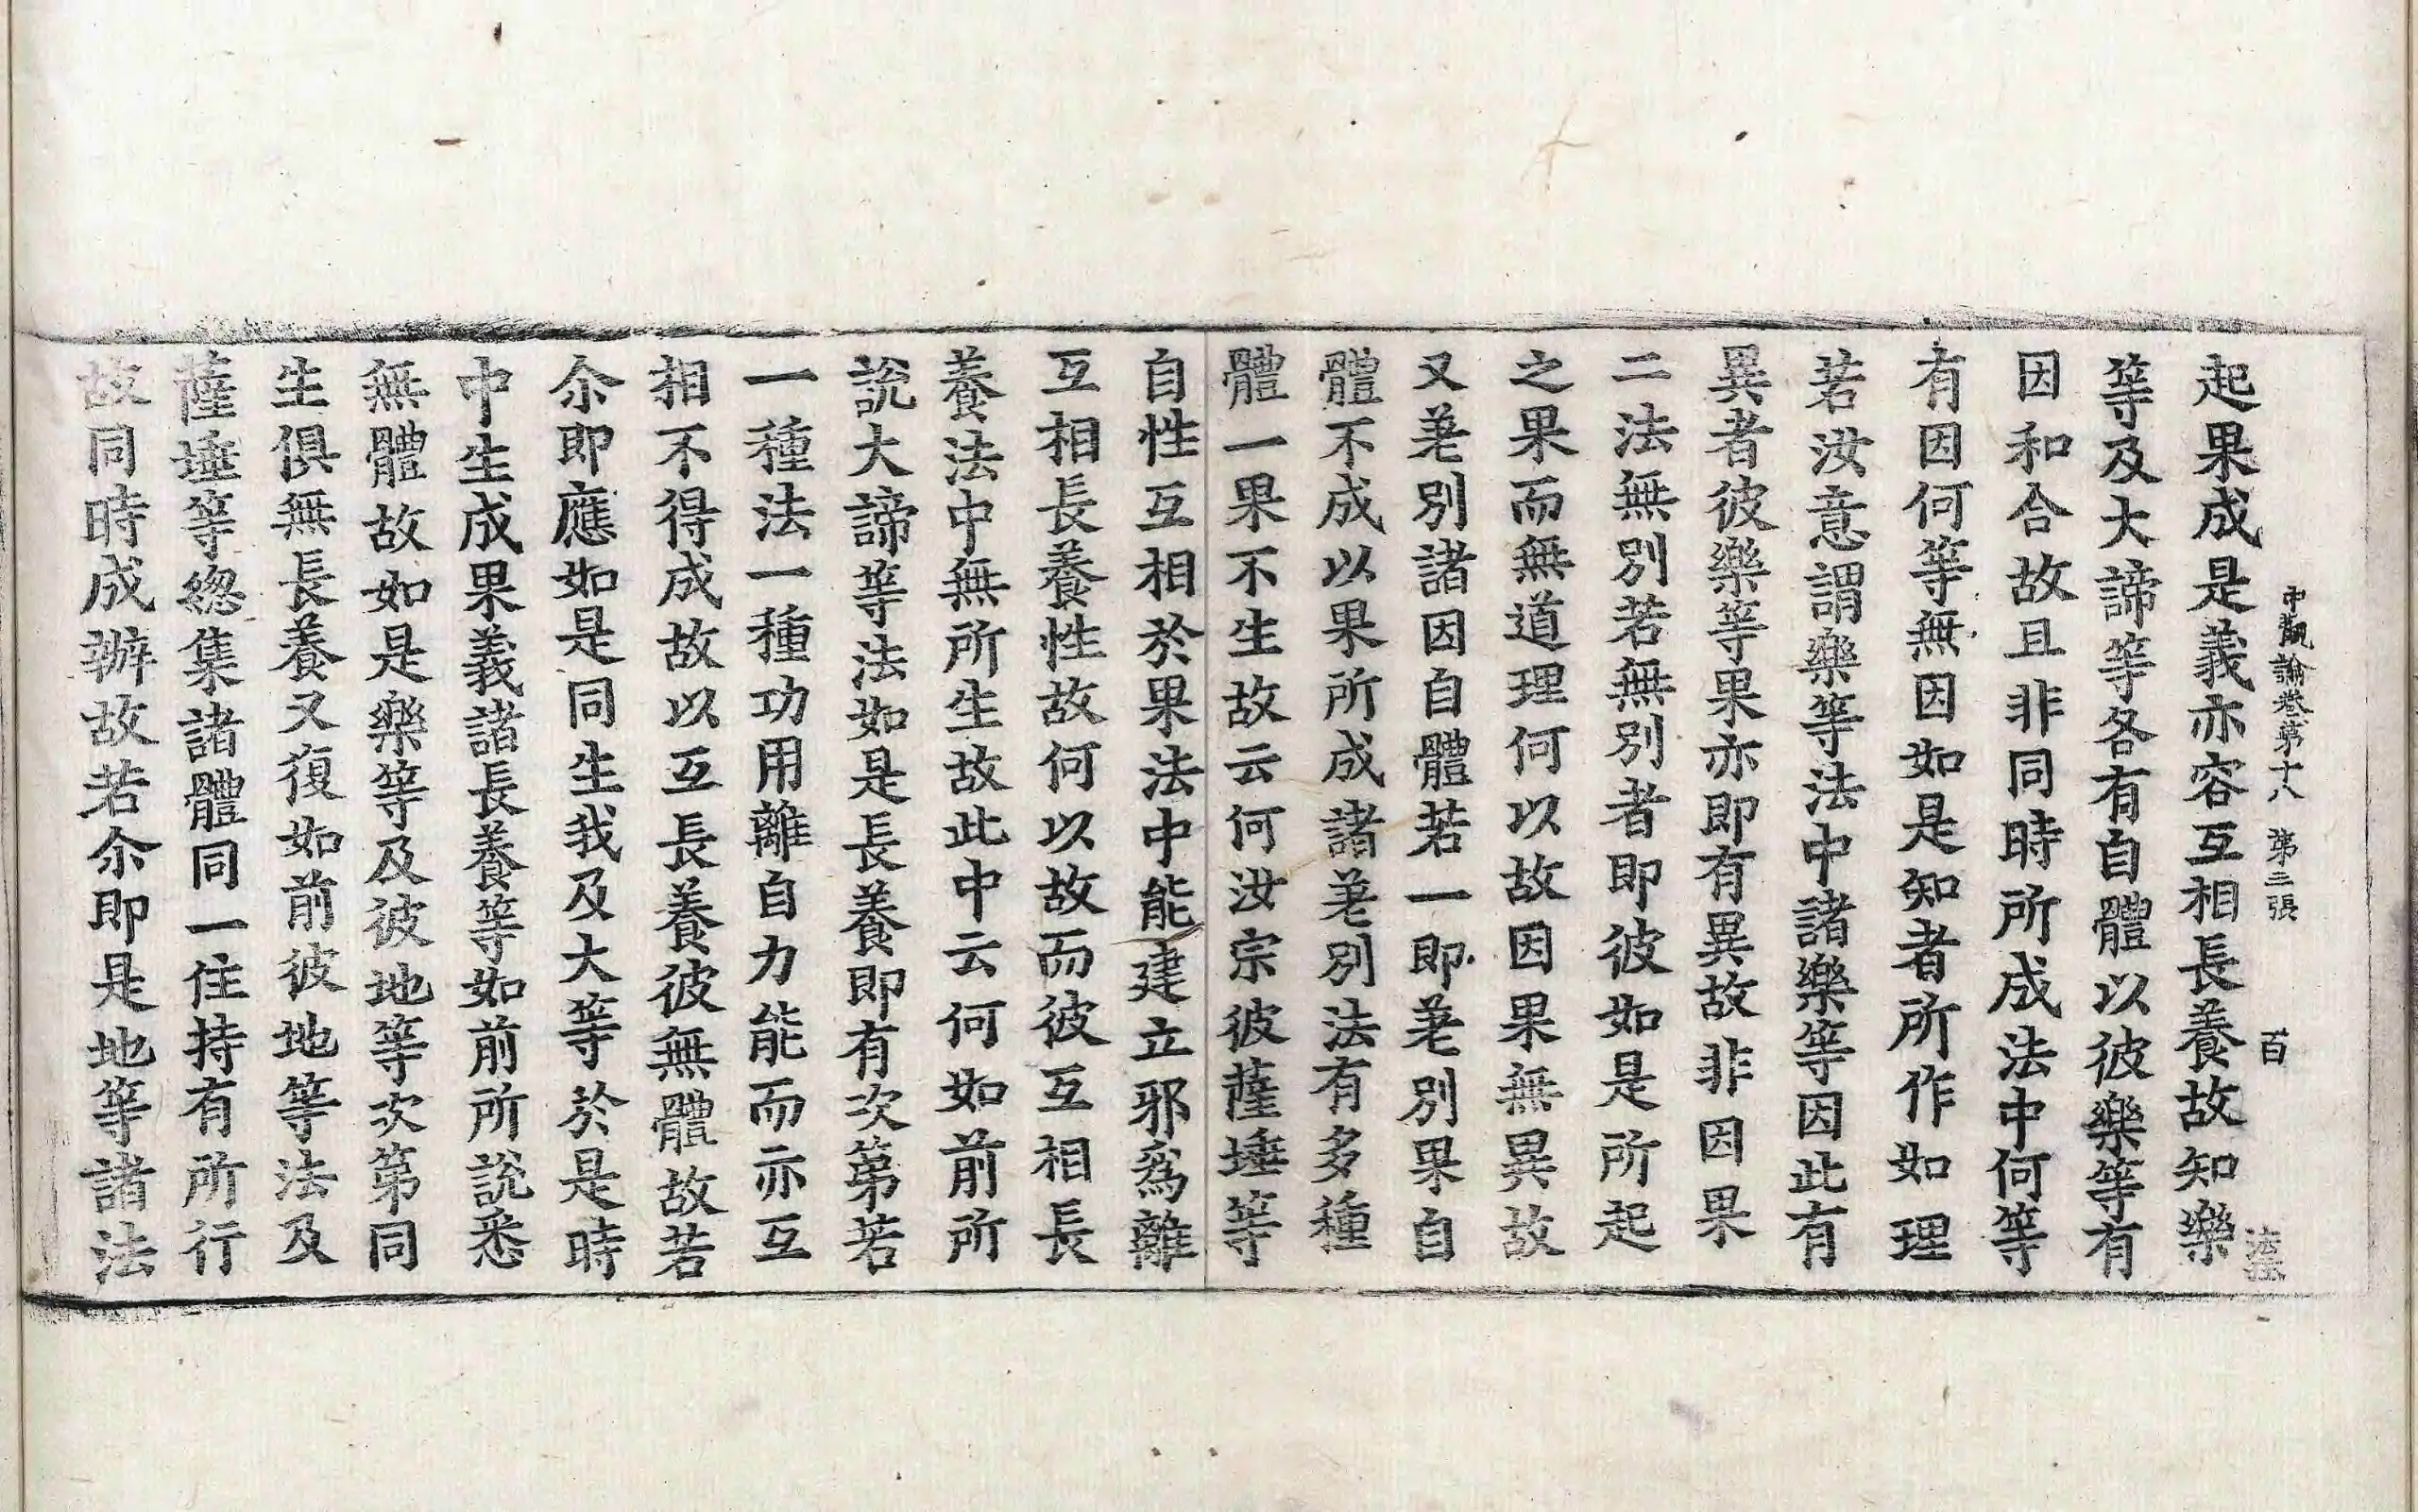 中觀論卷第十八　第三張　百
起果成是義亦容互相長養故知樂
等及大諦等各有自體以彼樂等有
因和合故且非同時所成法中何等
有因何等無因如是知者所作如理
若汝意謂樂等法中諸樂等因此有
異者彼樂等果亦即有異故非因果
二法無別若無別者即彼如是所起
之果而無道理何以故因果無異故
又差別諸因自體若一即差別果自
體不成以果所成諸差別法有多種
體一果不生故云何汝宗彼薩埵等
自性互相於果法中能建立邪爲離
互相長養性故何以故而彼互相長
養法中無所生故此中云何如前所
說大諦等法如是長養即有次第若
一種法一種功用離自力能而亦互
相不得成故以互長養彼無體故若
尒即應如是同生我及大等於是時
中生成果義諸長養等如前所說悉
無體故如是樂等及彼地等次第同
生俱無長養又復如前彼地等法及
薩埵等緫集諸體同一住持有所行
故同時成辦故若尒即是地等諸法